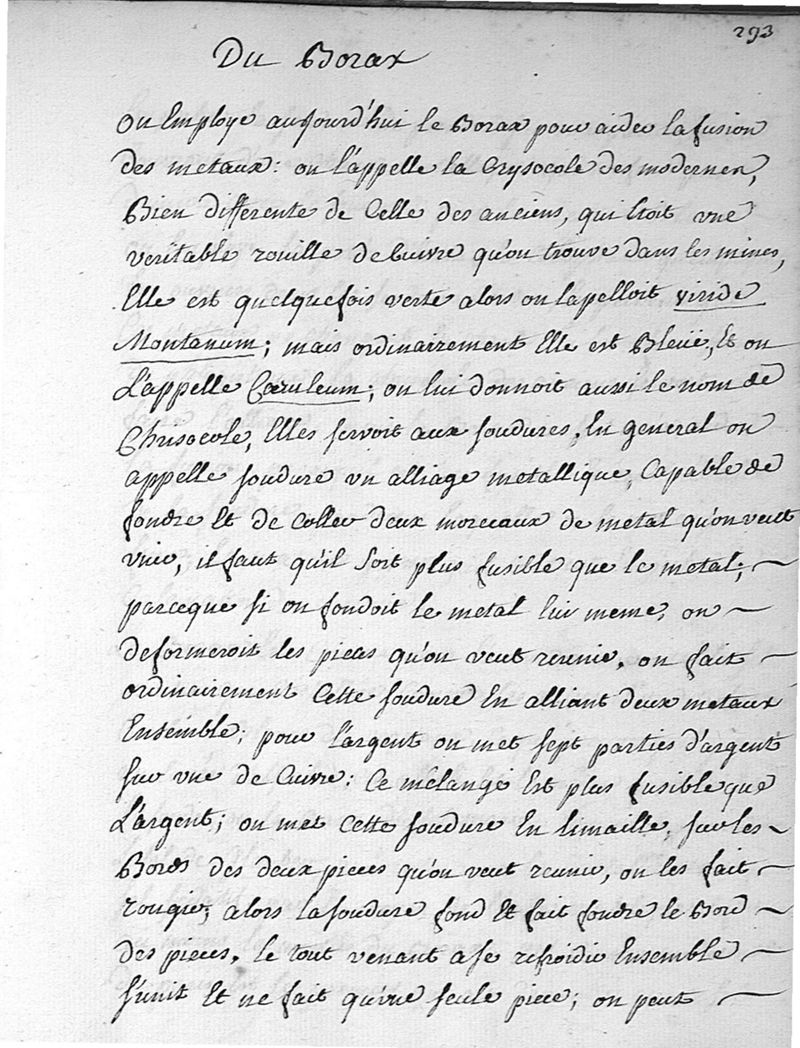 293
Du Borax
On Employe aujourd'hui le Borax pour aider la fusion
des metaux: on l'appelle la Crysocole des modernes,
Bien differente de Celle des anciens, qui Etoit vne
veritable rouille de Cuivre qu'on trouve dans les mines,
Elle est quelquefois verte alors on lapelloit viride
Montanum; mais ordinairement Elle est Bleüe, Et on
L'appelle Cœruleum; on lui donnoit aussi le nom de
Chrisocole, Elles servoit aux soudures, En general on
appelle soudure vn alliage metallique, Capable de
fondre Et de Coller deux morceaux de metal qu'on veut
vnir, il faut qu'il soit plus fusible que le metal;
parceque si on fondoit le metal lui meme, on
deformeroit les pieces qu'on veut reunir, on fait
ordinairement Cette soudure En alliant deux metaux
Ensemble; pour l'argent on met sept parties d'argent
sur vne de Cuivre: Ce mélange Est plus fusible que
L'argent; on met Cette soudure En limaille, sur les
Bords des deux pieces qu'on veut reunir, on les fait
rougir; alors la soudure fond Et fait fondre le Bord
des pieces, le tout venant a se refroidir Ensemble
s'unit Et ne fait qu'vne seule piece; on peut